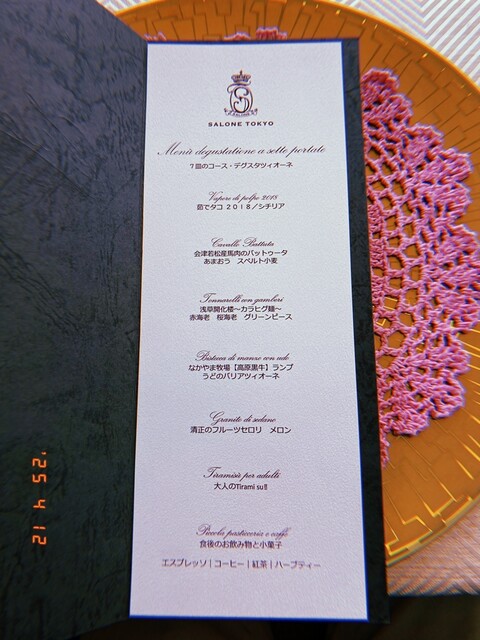 SALONE TOKYO
Menù degustazione a sette portate
7皿のコース・デグスタツィオーネ
Vapore di polpo 2018
茹でタコ 2018／シチリア
Cavallo Battuta
会津若松産馬肉のバットゥータ
あまおう スペルト小麦
Tonnarelli con gamberi
浅草開化楼〜カラヒグ麺〜
赤海老 桜海老 グリーンピース
Bistecca di manzo con udo
なかやま牧場【高原黒牛】ランプ
うどのバリアツィオーネ
Granita di sedano
清正のフルーツセロリ メロン
Tiramisù per adulti
大人のTirami su!!
Piccola pasticceria e caffè
食後のお飲み物と小菓子
エスプレッソ｜コーヒー｜紅茶｜ハーブティー
'25 4 12